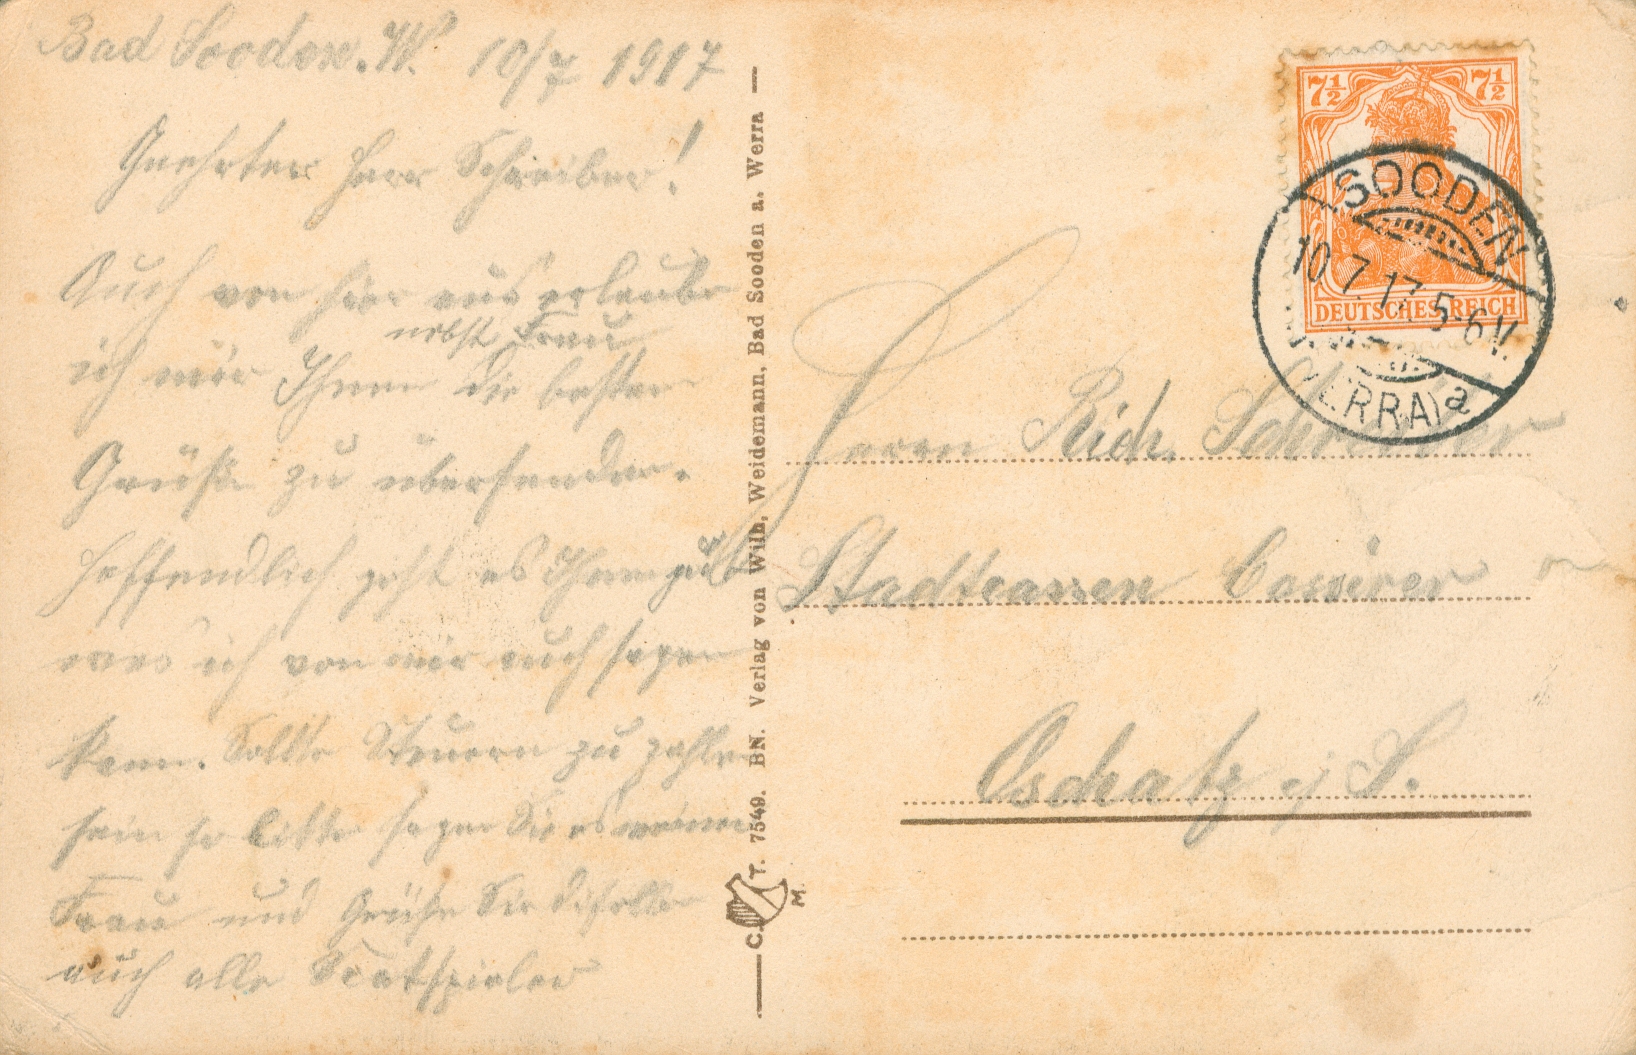 Bad Sooden. W. 10/7 1917
Geehrter Herr Schreiber!
Auch von hier aus erlaube
nebst Frau
ich mir Ihnen die besten
Grüße zu übersenden.
Hoffendlich geht es Ihnen gut
was ich von mir auch sagen
kann. Sollte Steuern zu zahlen
sein so bitte sagen Sie es meiner
Frau und Grüßen Sie dieselbe
auch alle Scatspieler
C. T. 7549. BN. Verlag von Wilh. Weidemann, Bad Sooden a. Werra
M.
7½ 7½
DEUTSCHES REICH
SOODEN
10.7.17. 5-6V.
(WERRA) a
Herrn Rich. Schreiber
Stadtcassen Cassirer
Oschatz i/S.